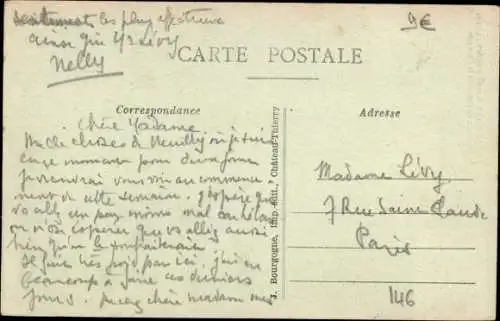 sentiments les plus affectueux
ainsi qu'à Mr Lévy
Nelly
9€
CARTE POSTALE
Correspondance
Adresse
Chère Madame
de Neuilly où je suis
en ce moment pour deux jours
je viendrai vous voir au commence-
ment de cette semaine. J'espère que
vs allez un peu moins mal
espérer que vs allez aussi
bien qu'on le
Je suis très par ici, j'ai eu
beaucoup à faire ces derniers
jours. chère madame mes
J. Bourgogne, Imp. édit., Château-Thierry
Madame Lévy
7 Rue Saint Claude
Paris
146